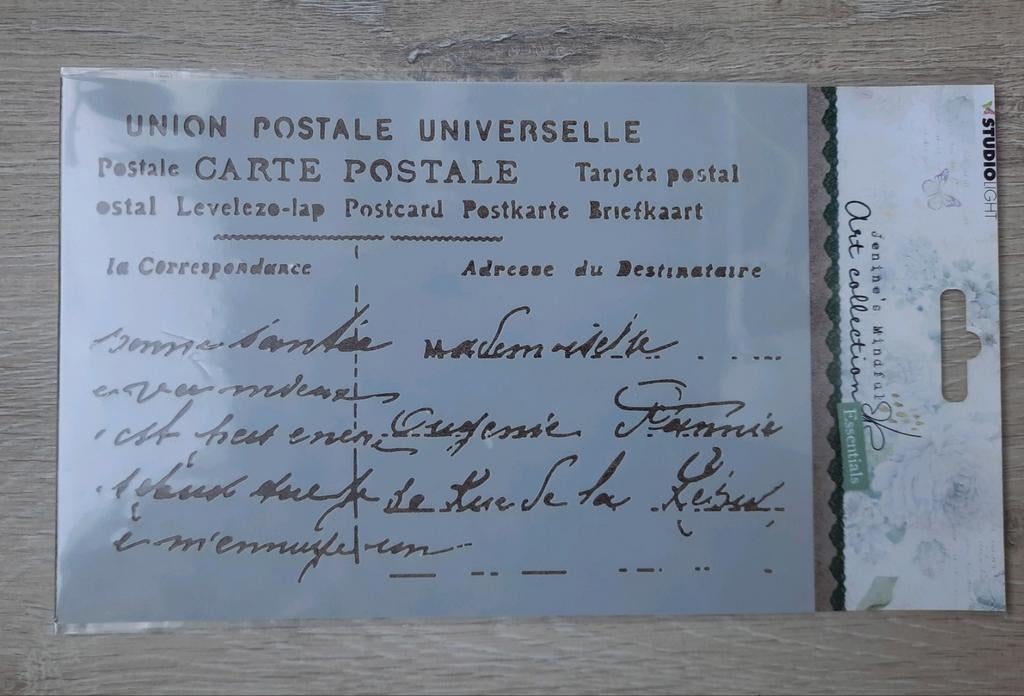 UNION POSTALE UNIVERSELLE
Postale CARTE POSTALE Tarjeta postal
ostal Levelezo-lap Postcard Postkarte Briefkaart
la Correspondance Adresse du Destinataire
bonne santée Mademoiselle
mieux
est Eugenie Fannie
Rue de la
m'ennuye un
STUDIOLIGHT
Jenine's Mindful
Art collection
Essentials